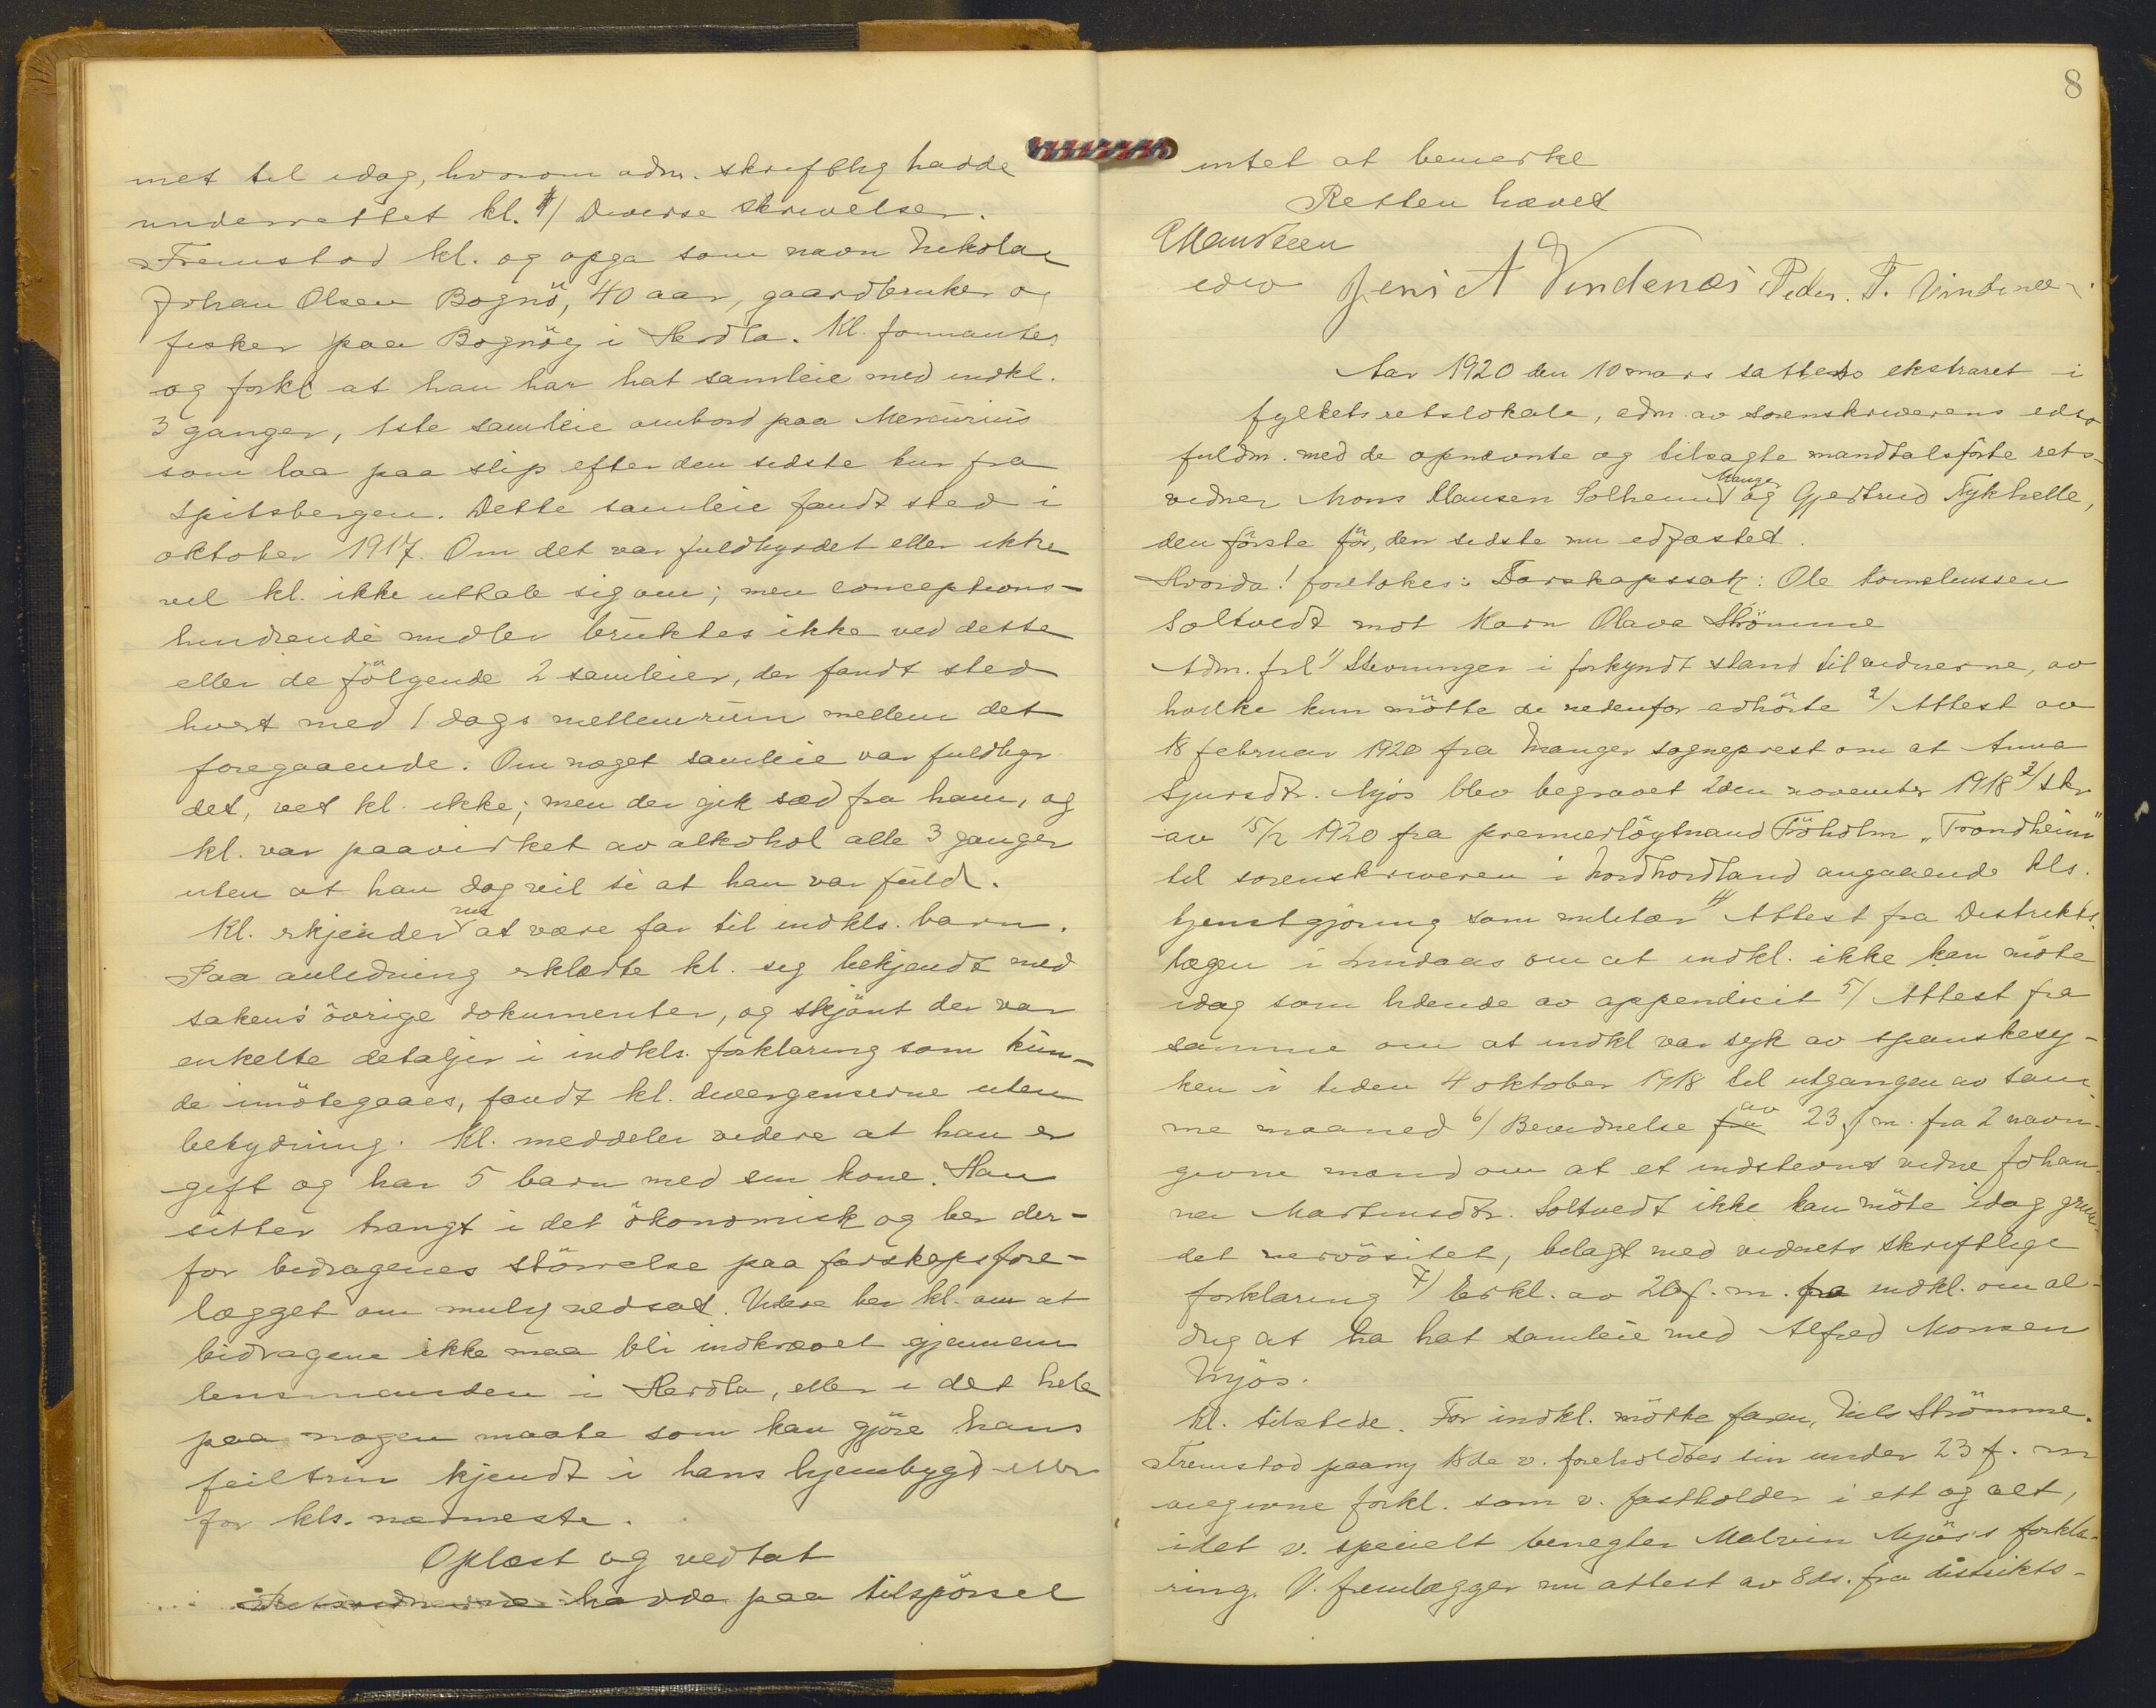 met til idag, hvorom adm. skriftlig hadde
underrettet kl. 4/ Diverse skrivelser.
Fremstod kl. og opga som navn Nikolai
Johan Olsen Bognö, 40 aar, gaardbruker og
fisker paa Bognöy i Herdla. Kl. formantes
og forkl. at han har hat samleie med indkl.
3 ganger, 1ste samleie ombord paa Mercurius
som laa paa slip efter den sidste tur fra
Spitsbergen. Dette samleie fandt sted i
oktober 1917. Om det var fuldbyrdet eller ikke
vil kl. ikke uttale sig om; men conceptions-
hindrende midler bruktes ikke ved dette
eller de fölgende 2 samleier, der fandt sted
hvert med 1 dags mellemrum mellem det
foregaaende. Om noget samleie var fuldbyr
det, vet kl. ikke; men der gik sæd fra ham, og
kl. var paavirket av alkohol alle 3 ganger
uten at han dog vil si at han var fuld.
Kl. erkjender at være far til indkls. barn.
Paa anledning erklærte kl. sig bekjendt med
sakens övrige dokumenter, og skjönt der var
enkelte detaljer i indkls. forklaring som kun-
de imötegaaes, fandt kl. divergenserne uten
betydning. Kl. meddeler videre at han er
gift og har 5 barn med sin kone. Han
sitter trangt i det ökonomisk og ber der-
for bidragenes störrelse paa farskapsfore-
lægget om mulig nedsat. Videre ber kl. om at
bidragene ikke maa bli indkrævet gjennem
lensmanden i Herdla, eller i det hele
paa nogen maate som kan gjöre hans
feiltrin kjendt i hans hjembygd eller
for kls. nærmeste.
Oplæst og vedtat
Retsvidnerne hadde paa tilspörsel
8
intet at bemerke
Retten hævet
edsv Jens A Vindenæs Peder. T. Vindenes.
Aar 1920 den 10 mars sattes ekstraret i
fylkets retslokale, adm. av sorenskriverens edsv
fuldm. med de opnævnte og tilsagte mandtalsförte rets-
vidner Mons Clausen Solheim Manger og Gjertrud Tykhelle,
den förste för, den sidste nu edfæstet.
Hvorda! foretokes: Farskapssak: Ole Cornelussen
Soltvedt mot Karn Olava Strömme
Adm. frl. 1/ Stevninger i forkyndt stand til vidnerne, av
hvilke kun mötte de nedenfor avhörte 2/ Attest av
18 februar 1920 fra Manger sogneprest om at Anna
Sjursdtr. Mjös blev begravet 2den november 1918 3/ Skr
av 15/2 1920 fra premierlöytnand Fröholm "Trondheim"
til sorenskriveren i Nordhordland angaaende kls.
tjenstgjöring som militær 4/ Attest fra Distrikts-
lægen i Lindaas om at indkl. ikke kan möte
idag som lidende av appendicit 5/ Attest fra
samme om at indkl var syk av spanskesy-
ken i tiden 4 oktober 1918 til utgangen av sam
me maaned 6/ Bevidnelse fra av 23 f. m. fra 2 navn-
givne mænd om at et indstevnt vidne Johan-
na Martinsdtr. Soltvedt ikke kan möte idag grun-
det nervösitet, bilagt med vidnets skriftlige
forklaring 7/ Erkl. av 20 f. m. fra indkl. om al-
drig at ha hat samleie med Alfred Monsen
Mjös.
Kl. tilstede. For indkl. mötte faren, Nils Strömme.
Fremstod paany 1ste v. foreholdtes sin under 23 f. m
avgivne forkl. som v. fastholder i ett og alt,
idet v. specielt benegter Malvin Mjös's forkla-
ring. V. fremlægger nu attest av 8 ds. fra distrikts-